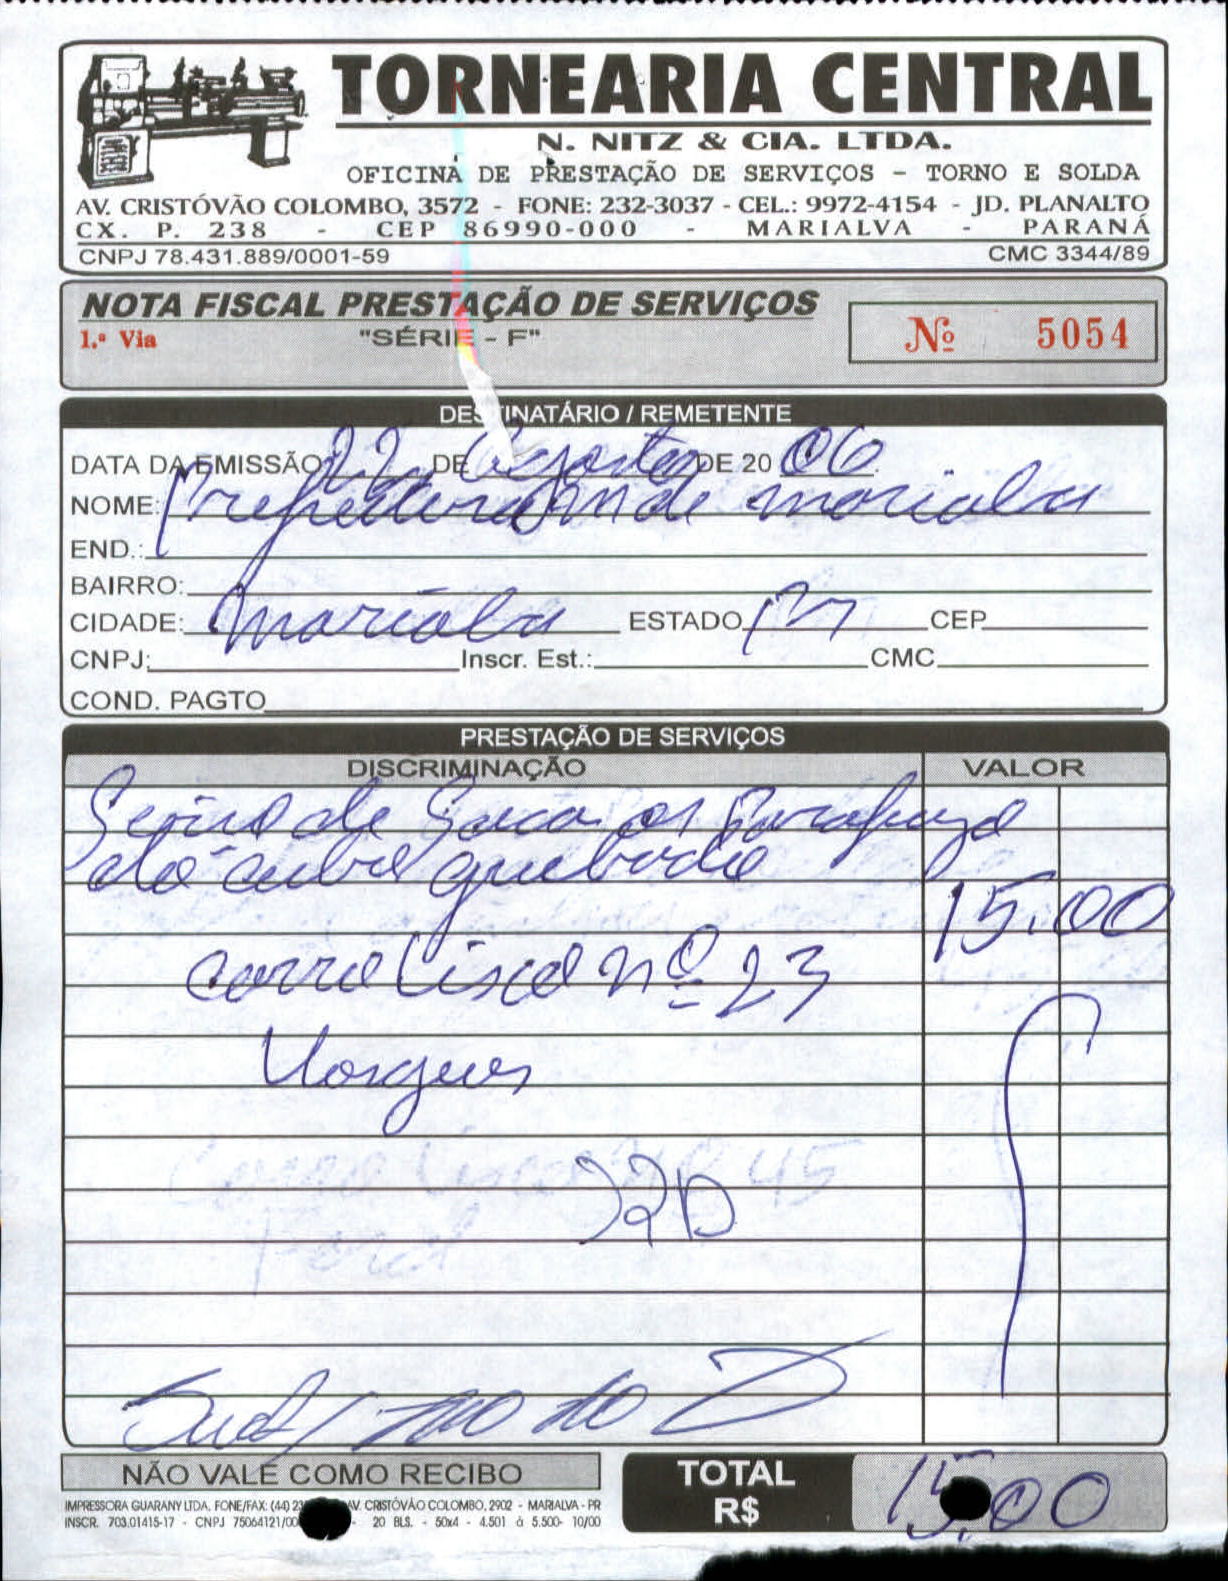 TORNEARIA CENTRAL
N. NITZ & CIA. LTDA.
OFICINA DE PRESTAÇÃO DE SERVIÇOS - TORNO E SOLDA
AV. CRISTÓVÃO COLOMBO, 3572 - FONE: 232-3037 - CEL.: 9972-4154 - JD. PLANALTO
CX. P. 238 - CEP 86990-000 - MARIALVA - PARANÁ
CNPJ 78.431.889/0001-59 CMC 3344/89
NOTA FISCAL PRESTAÇÃO DE SERVIÇOS
1.ª Via "SÉRIE - F" Nº 5054
DESTINATÁRIO / REMETENTE
DATA DA EMISSÃO 22 DE Agosto DE 20 06
NOME: Prefeitura M de marialva
END.:
BAIRRO:
CIDADE: marialva ESTADO CEP
CNPJ: Inscr. Est.: CMC
COND. PAGTO
PRESTAÇÃO DE SERVIÇOS
DISCRIMINAÇÃO VALOR
de Saca os Parafuzo
do cubo quebrado
15,00
carro nº 23
NÃO VALE COMO RECIBO
TOTAL R$ 15,00
IMPRESSORA GUARANY LTDA. FONE/FAX: (44) AV. CRISTÓVÃO COLOMBO, 2902 - MARIALVA - PR
INSCR. 703.01415-17 - CNPJ 75064121/00 - 20 BLS. - 50x4 - 4.501 à 5.500- 10/00